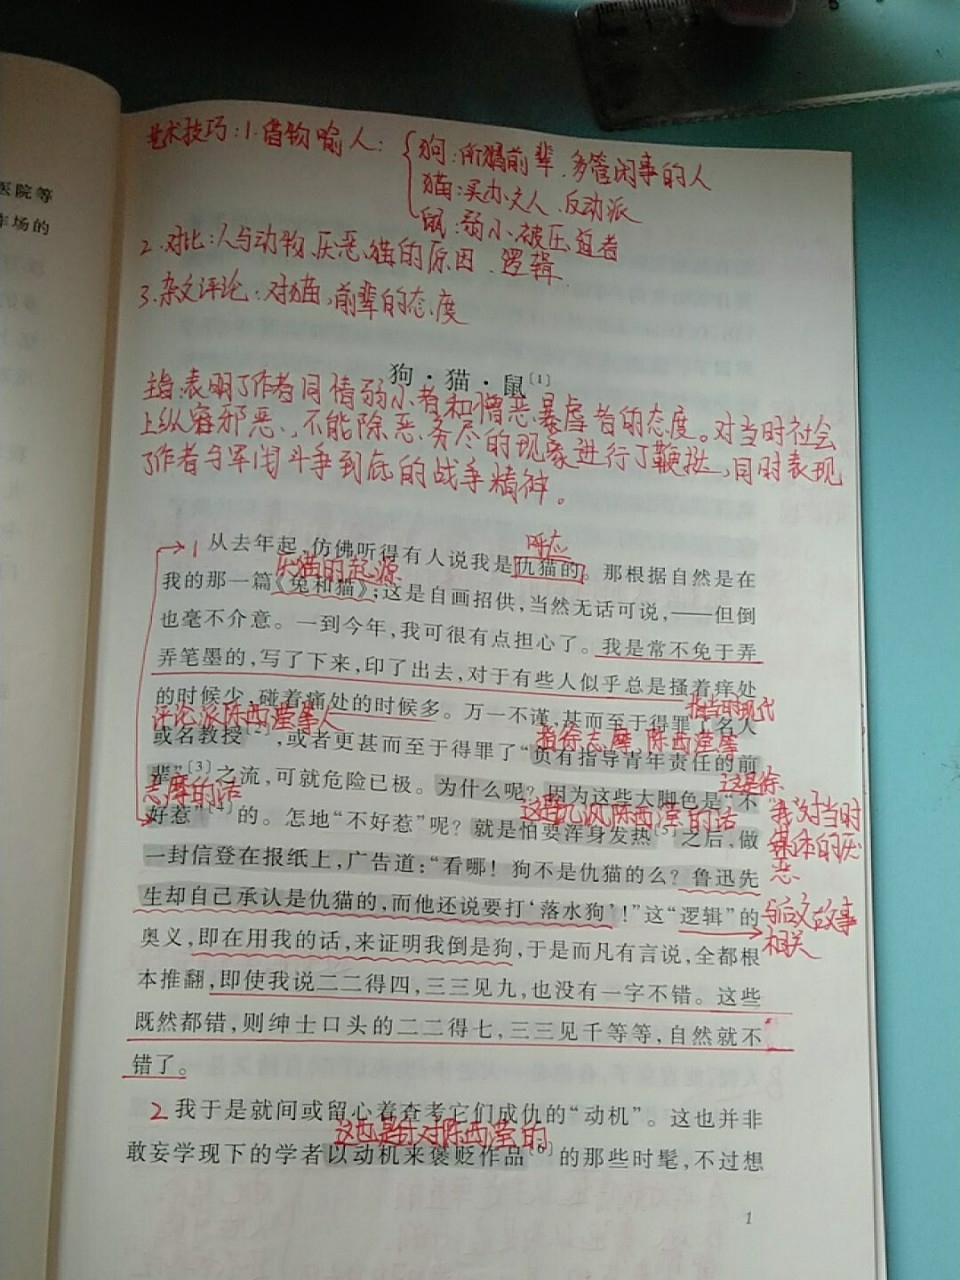 医院等
场的
艺术技巧:1.借物喻人:
狗:所谓前辈、多管闲事的人
猫:买办文人、反动派
鼠:弱小、被压迫者
2.对比:人与动物、厌恶猫的原因、逻辑
3.杂文评论:对猫、前辈的态度
狗·猫·鼠[1]
主旨:表明了作者同情弱小者和憎恶暴虐者的态度。对当时社会
上纵容邪恶、不能除恶务尽的现象进行了鞭挞,同时表现
了作者与军阀斗争到底的战争精神。
呼应
1 从去年起,仿佛听得有人说我是仇猫的。那根据自然是在
仇猫的起源
我的那一篇《兔和猫》;这是自画招供,当然无话可说,——但倒
也毫不介意。一到今年,我可很有点担心了。我是常不免于弄
弄笔墨的,写了下来,印了出去,对于有些人似乎总是搔着痒处
的时候少,碰着痛处的时候多。万一不谨,甚而至于得罪了名人
评论派陈西滢等人
指当时现代
或名教授[2],或者更甚而至于得罪了“负有指导青年责任的前
指徐志摩、陈西滢等
辈”[3]之流,可就危险已极。为什么呢?因为这些大脚色是“不
这是徐
志摩的话
好惹”[4]的。怎地“不好惹”呢?就是怕要浑身发热[5]之后,做
这是讥讽陈西滢的话
对当时
媒体的厌
恶
一封信登在报纸上,广告道:“看哪!狗不是仇猫的么?鲁迅先
生却自己承认是仇猫的,而他还说要打‘落水狗’!”这“逻辑”的
与后文故事
相关
奥义,即在用我的话,来证明我倒是狗,于是而凡有言说,全都根
本推翻,即使我说二二得四,三三见九,也没有一字不错。这些
既然都错,则绅士口头的二二得七,三三见千等等,自然就不
错了。
2 我于是就间或留心着查考它们成仇的“动机”。这也并非
这也是针对陈西滢的
敢妄学现下的学者以动机来褒贬作品[6]的那些时髦,不过想
1